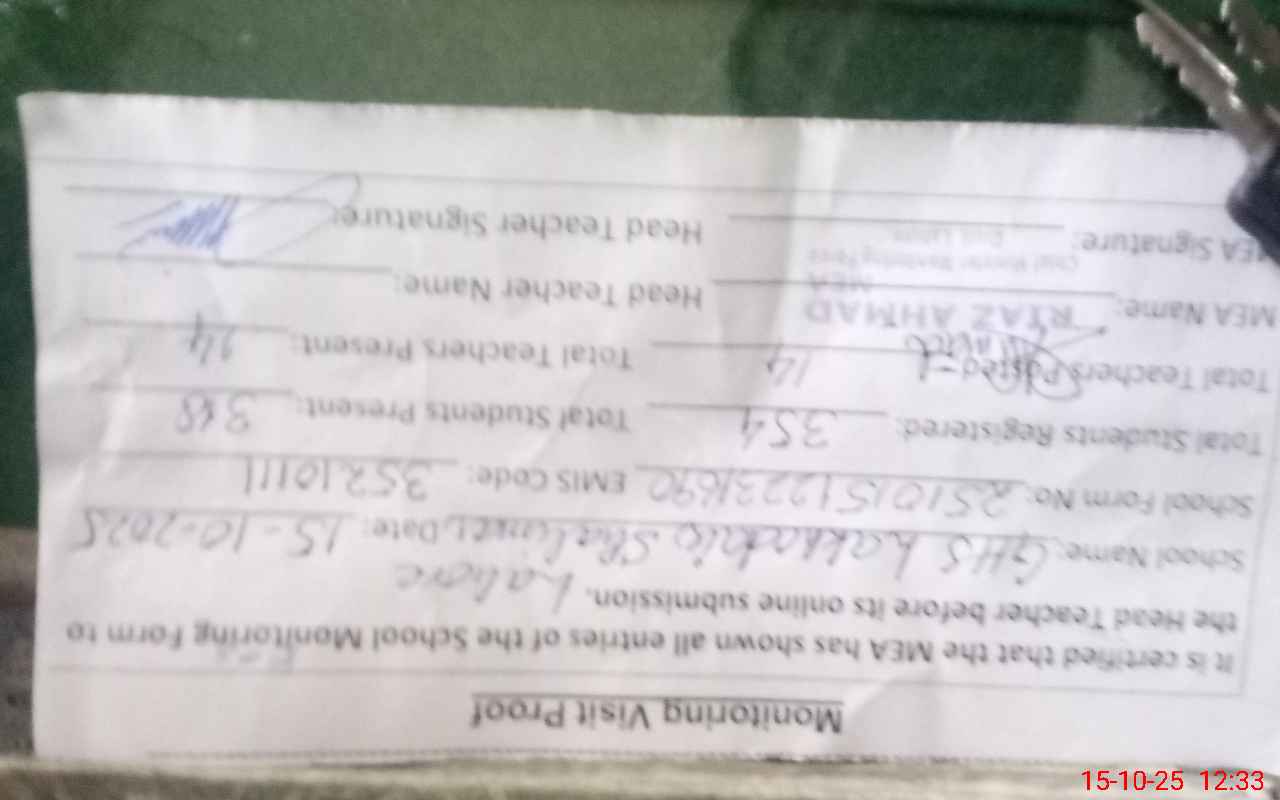 Monitoring Visit Proof
It is certified that the MEA has shown all entries of the School Monitoring Form to
the Head Teacher before its online submission. Lahore
School Name: GHS Lakhodair Shalimar Date: 15-10-2025
School Form No: EMIS Code: 35210111
Total Students Registered: 354 Total Students Present: 348
Total Teachers Posted 14 Total Teachers Present: 14
MEA Name: RIAZ AHMAD Head Teacher Name:
MEA
Chief Minister Monitoring Force
MEA Signature: Head Teacher Signature:
15-10-25 12:33